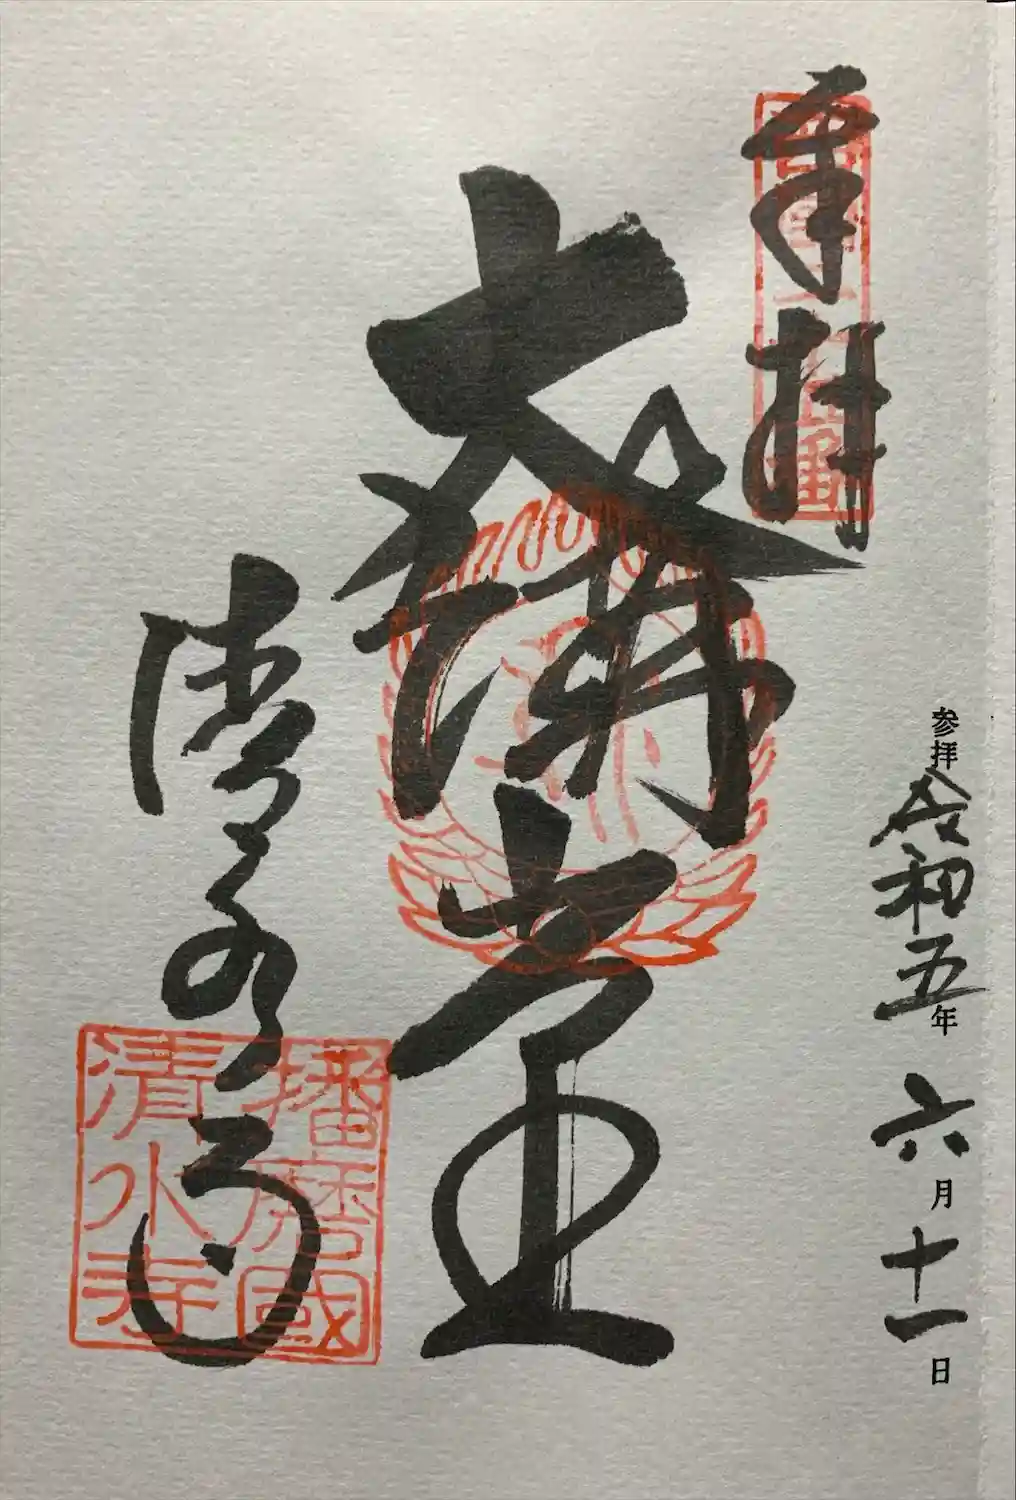 参拝 令和五年 六月十一日
奉拝
西國二十五番
大講堂
清水寺
播磨國
清水寺